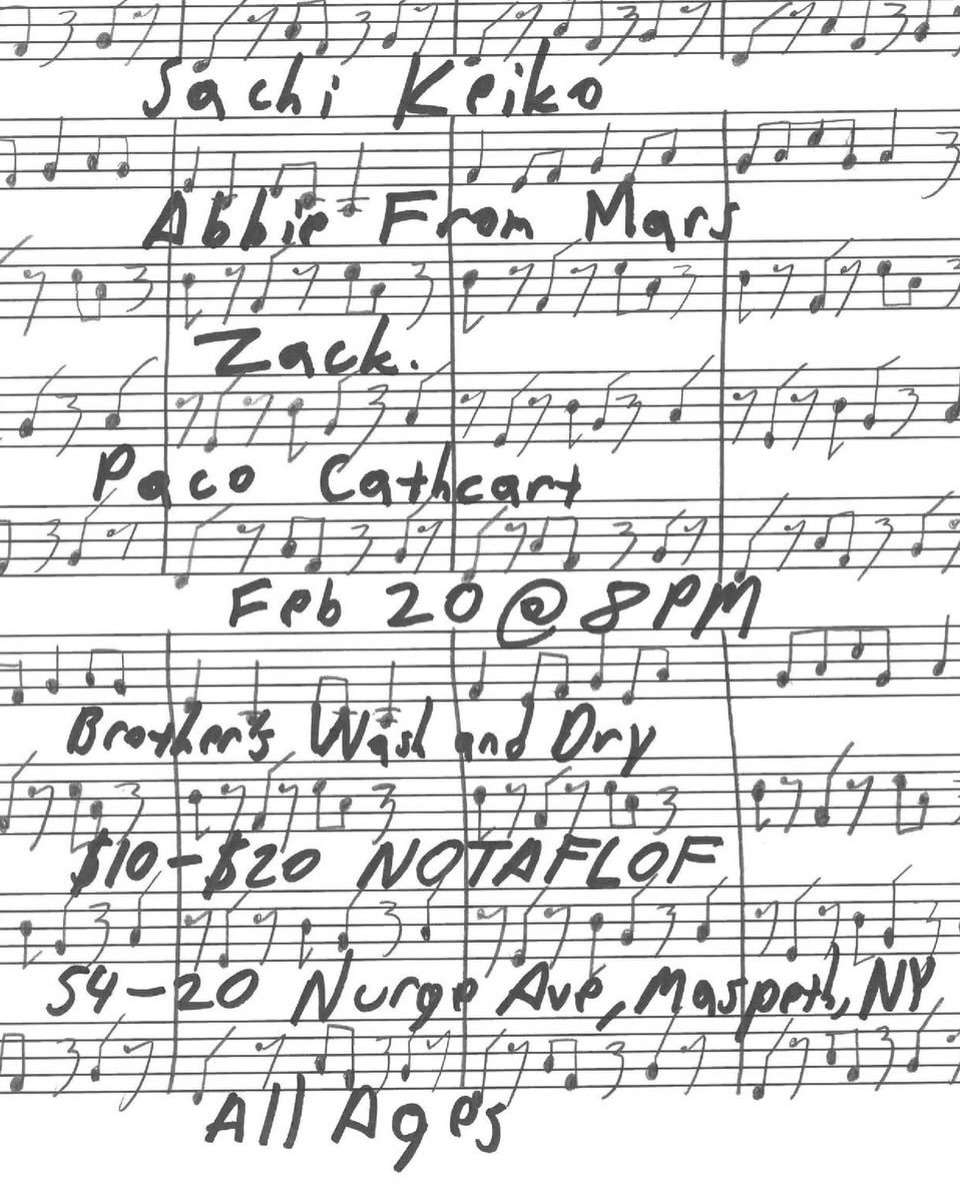 Sachi Keiko
Abbie From Mars
Zack.
Paco Cathcart
Feb 20 @ 8PM
Brother's Wash and Dry
$10-$20 NOTAFLOF
54-20 Nurge Ave, Maspeth, NY
All Ages